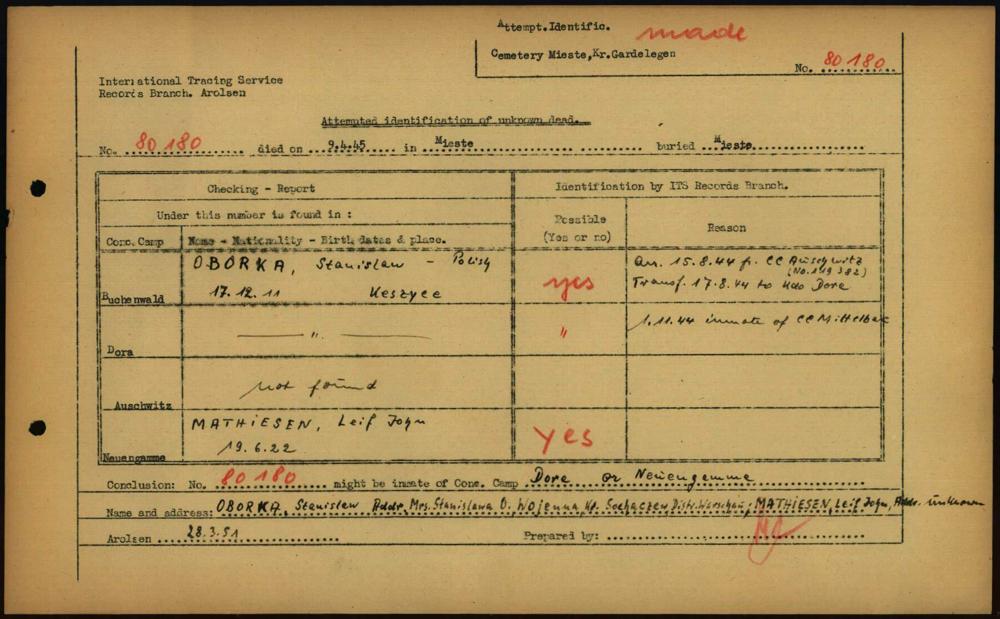 Attempt.Identific. made
Cemetery Mieste,Kr.Gardelegen
No. 80 180
International Tracing Service
Records Branch. Arolsen
Attempted identification of unknown dead.
No. 80 180 died on 9.4.45 in Mieste buried Mieste
Checking - Report
Identification by ITS Records Branch.
Under this number is found in :
Possible
(Yes or no)
Reason
Conc. Camp
Name - Nationality - Birth dates & place.
OBORKA, Stanislaw - Polish
17.12.11 Keszyce
Buchenwald
yes
Arr. 15.8.44 fr. CC Auschwitz
(No. 149 382)
Transf. 17.8.44 to Kdo Dora
— " —
Dora
"
1.11.44 inmate of CC Mittelbau
not found
Auschwitz
MATHIESEN, Leif John
19.6.22
Neuengamme
yes
Conclusion: No. 80 180 might be inmate of Conc. Camp Dora or Neuengamme
Name and address: OBORKA, Stanislaw Addr. Mrs. Stanislawa O. Wojenna, Kr. Sochaczew, Distr. Warschau, MATHIESEN, Leif John, Addr. unknown
Arolsen 28.3.51 Prepared by: